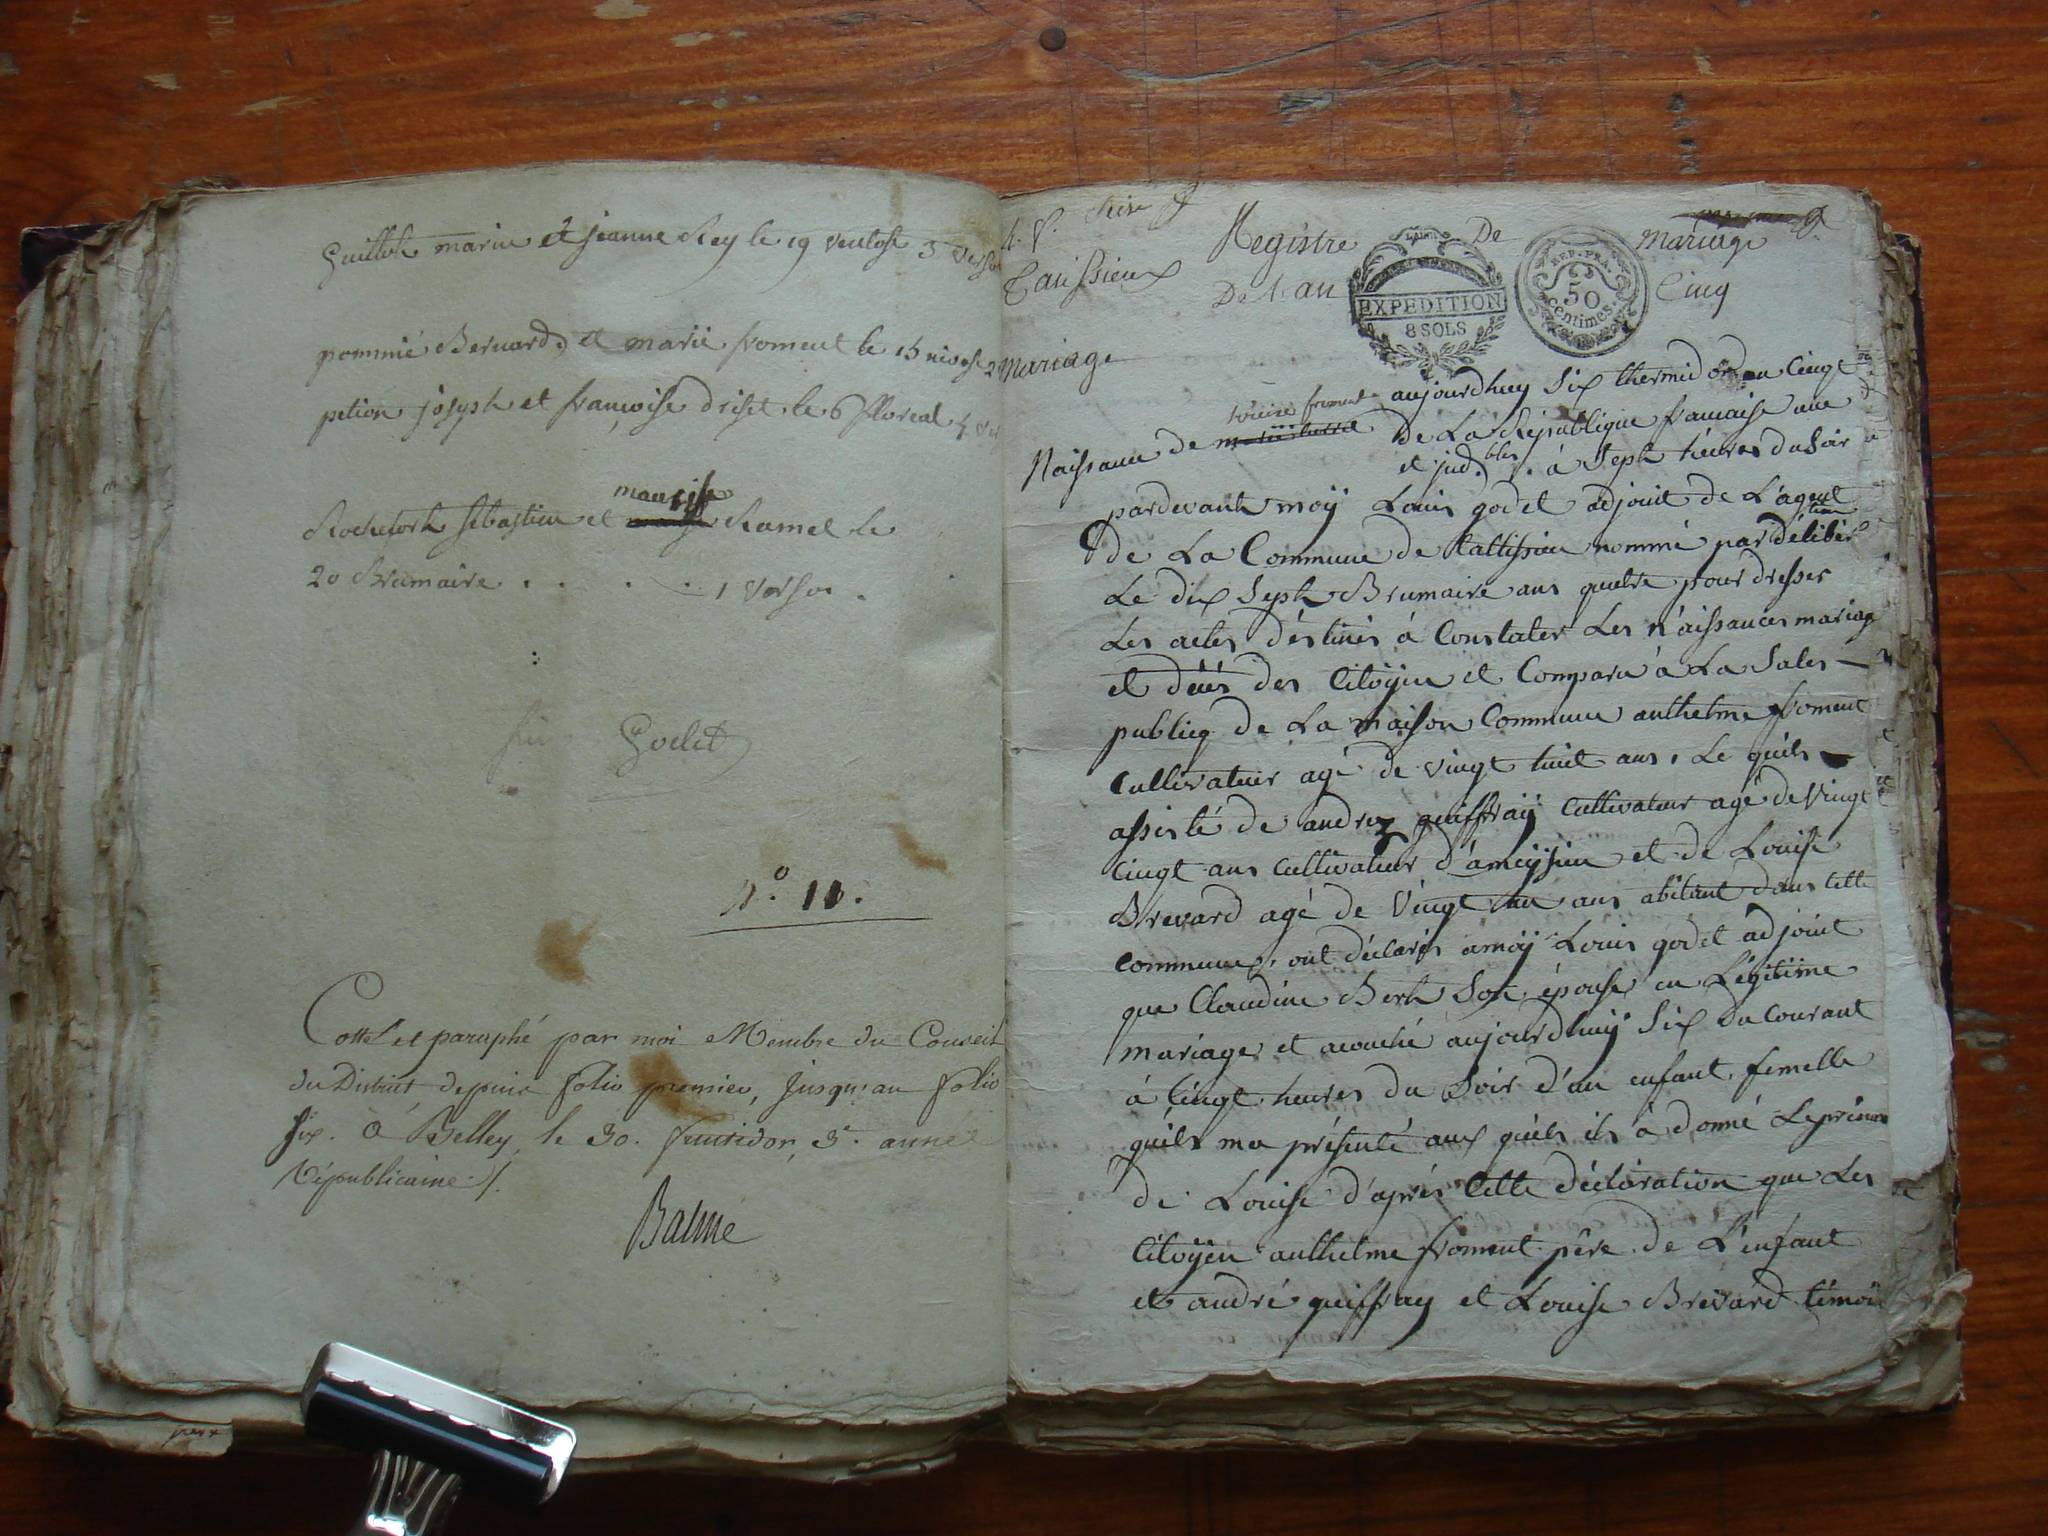 Guillot marin et jeanne Rey le 19 ventose 3 verso
pommié Bernard et marie froment le 15 nivose 2
petion joseph et françoise driset le 6 floreal 4
maurise
Rochefort sebastien et Ramel le
20 Brumaire . . . . . 1 verso .
Godet
N.º 11.
Cotté et paraphé par moi Membre du Conseil
du District depuis folio premier, jusqu'au folio
six. à Belley le 30. fructidor, 3e. année
Républicaine ./.
Balme
4. V.
Registre De Mariage
De l'an Cinq
EXPEDITION
8 SOLS
REP. FRA.
50
Centimes.
Mariage
louise froment
Naissance de
aujourdhuy six thermidor an cinqt
de La République francaise une
et jnd.bles . à Sept héures du soir
pardevant moÿ Louis godet adjoint de L'agent
de La Commune de nommé par délibér
tion
Le dix Sept Brumaire ans quatre pour dresser
Les actes déstinés à Constater Les n'aissances mariag
et décés des Citöÿen et Comparu à La Sales —
publicq de La maison Commune anthelme froment
Cultivateur agé de vingt huit ans, Le quéls —
assisté de andrez guiffraÿ Cultivateur agé de Vingt
Cinqt ans Cultivateur d'ameÿsieu et de Louise
Brevard agé de Vingt un ans abitant dans cette
commune, ont déclarés amoÿ Louis godet adjoint
que Claudine Bert Son épouse en Légitime
mariage et acouché aujourdhuÿ Six du Courant
à Cinqt heures du Soir d'un enfant femelle
quéls ma présenté aux quéls ils à donné Leprénom
de Louise d'aprés Cette déclaration que Les
Citoÿen anthelme froment pére de L'énfant
et andré guiffray et Louise Brevard témoi